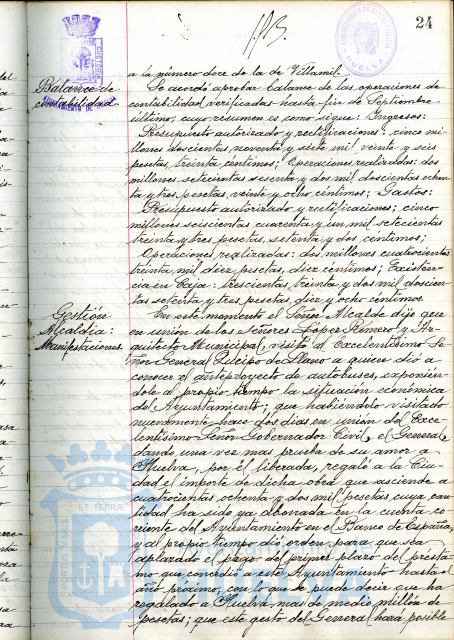 24
Balance de
contabilidad.
a la número doce de la de Villamil.
Se acordó aprobar balance de las operaciones de
contabilidad verificadas hasta fin de Septiembre
último, cuyo resumen es como sigue: Ingresos:
Presupuesto autorizado y rectificaciones: cinco mi-
llones doscientas noventa y siete mil veinte y seis
pesetas, treinta céntimos; Operaciones realizadas: dos
millones setecientas sesenta y dos mil doscientas ochen-
ta y tres pesetas, veinte y ocho céntimos; Gastos:
Presupuesto autorizado y rectificaciones; cinco
millones seiscientas cuarenta y un mil setecientas
treinta y tres pesetas, setenta y dos céntimos;
Operaciones realizadas: dos millones cuatrocientas
treinta mil diez pesetas, diez céntimos; Existen-
cia en Caja: trescientas treinta y dos mil doscien-
tas setenta y tres pesetas, diez y ocho céntimos.
Gestión
Alcaldía:
Manifestaciones.
En este momento el Señor Alcalde dijo que
en unión de los Señores López Romero y Ar-
quitecto Municipal, visitó al Excelentísimo Se-
ñor General Queipo de Llano a quien dió a
conocer el anteproyecto de autobuses, exponién-
dole al propio tiempo la situación económica
del Ayuntamiento; que habiéndole visitado
nuevamente hace dos días en unión del Exce-
lentísimo Señor Gobernador Civil, el General,
dando una vez mas prueba de su amor a
Huelva, por él liberada, regaló a la Ciu-
dad el importe de dicha obra que asciende a
cuatrocientas ochenta y dos mil pesetas cuya can-
tidad ha sido ya abonada en la cuenta co-
rriente del Ayuntamiento en el Banco de España,
y al propio tiempo dió orden para que sea
aplazado el pago del primer plazo del présta-
mo que concedió a este Ayuntamiento hasta el
año próximo, con lo que se puede decir que ha
regalado a Huelva mas de medio millón de
pesetas; que este gesto del General hará posible